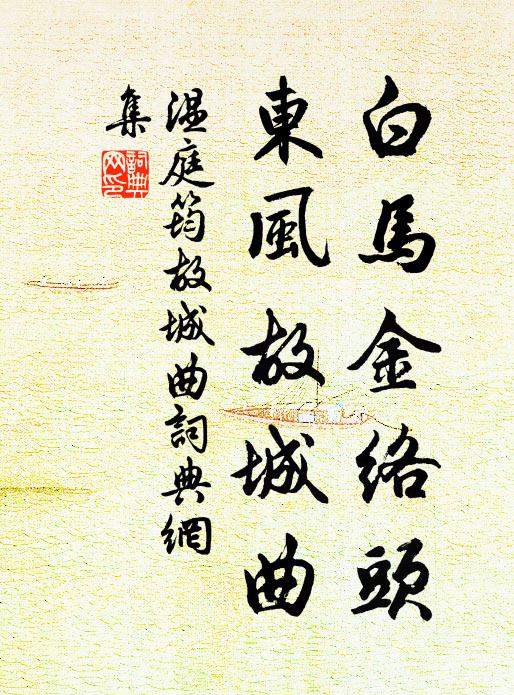 白馬金絡頭
東風故城曲
温庭筠故城曲詞典網
集
詞典
网印